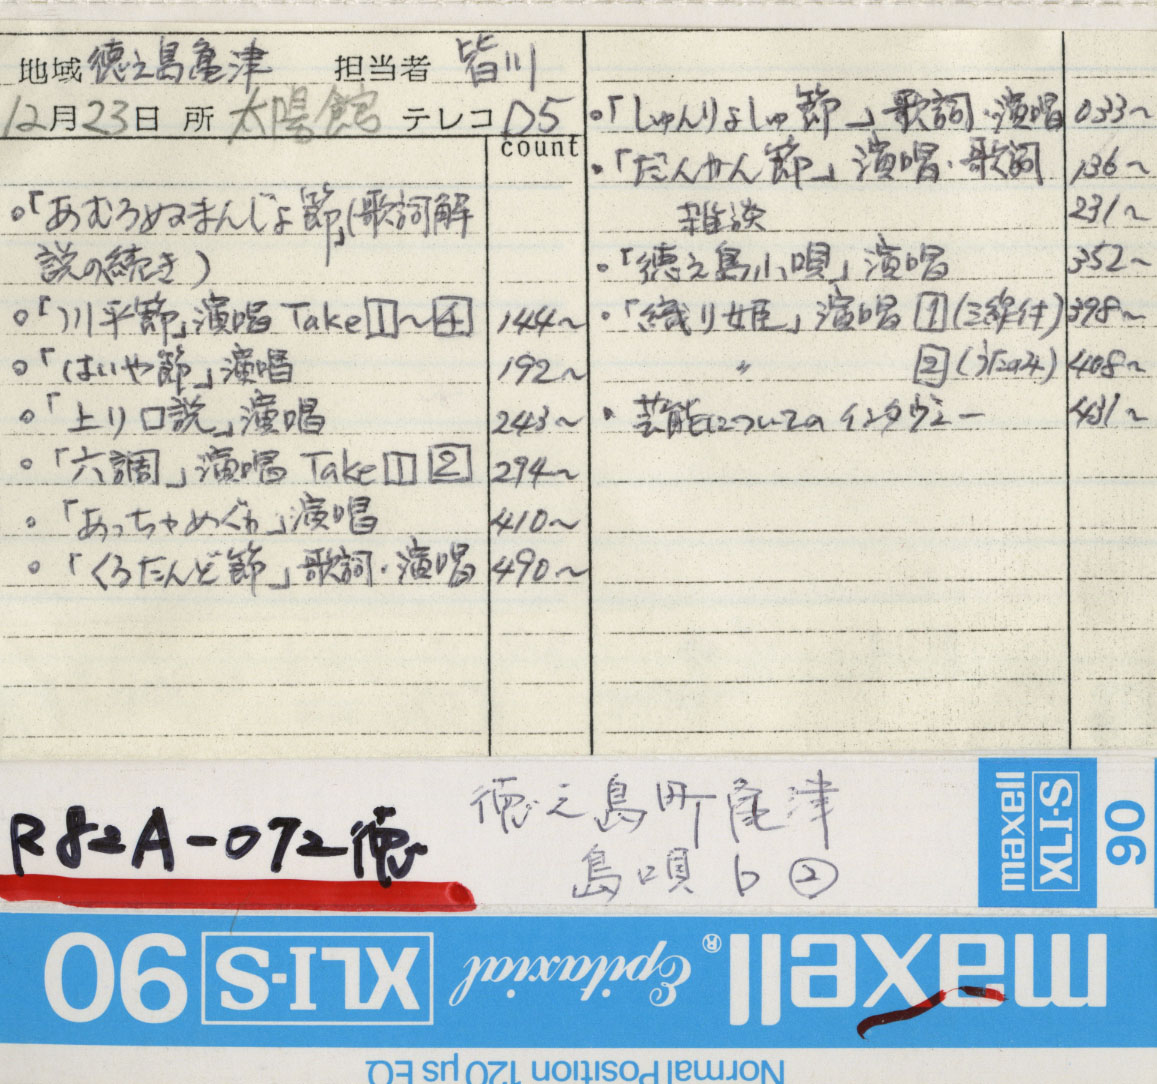 地域 徳之島亀津 担当者 皆川
12月23日 所 太陽館 テレコ D5
count
。「あむろぬまんじょ節」(歌詞解
説の続き)
。「川平節」演唱 Take 1～4 144～
。「はいや節」演唱 192～
。「上り口説」演唱 243～
。「六調」演唱 Take 1 2 294～
。「あっちゃめぐゎ」演唱 410～
。「くろだんど節」歌詞・演唱 490～
。「しゅんりょしゅ節」歌詞・演唱 033～
・「だんかん節」演唱・歌詞 136～
雑談 231～
・「徳之島小唄」演唱 352～
・「織り姫」演唱 1 (三線付) 398～
〃 2 (うたのみ) 408～
・芸能についてのインタヴュー 431～
R82A-072徳
徳之島町亀津
島唄 b ②
maxell
XLI-S
90
maxell Epitaxial XLI-S 90
Normal Position 120 μs EQ